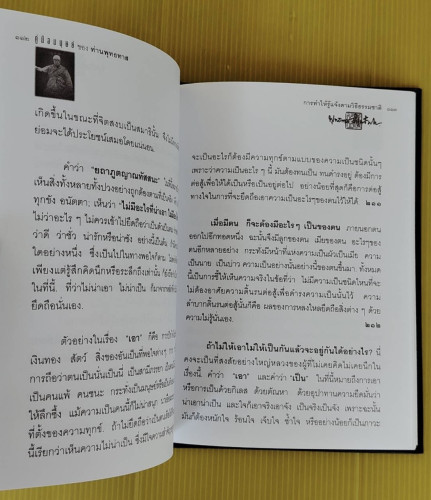 ๑๑๒ คู่มือมนุษย์ ของ ท่านพุทธทาส
เกิดขึ้นในขณะที่จิตสงบเป็นสมาธินั้น
ย่อมจะได้ประโยชน์เสมอโดยแน่นอน.
คำว่า "ยถาภูตญาณทัสสนะ"
เห็นสิ่งทั้งหลายทั้งปวงอย่างถูกต้องตามที่เป็น
ทุกขัง อนัตตา: เห็นว่า "ไม่มีอะไรที่น่าเอา
ไม่ว่าอะไร ๆ ไม่ควรเข้าไปยึดถือว่าเป็น
ว่าดี ว่าชั่ว น่ารักหรือน่าชัง อย่างนี้เป็นต้น
ใดอย่างหนึ่ง ซึ่งเป็นไปในทางพอใจก็ตาม
เพียงแต่รู้สึกคิดนึกหรือระลึกถึงเท่านั้น
ในที่นี้. ที่ว่าไม่น่าเอา ไม่น่าเป็น ก็มาจากการ
ยึดถือนั่นเอง.
ตัวอย่างในเรื่อง "เอา" ก็คือ
เงินทอง สัตว์ สิ่งของอันเป็นที่พอใจต่าง ๆ
การถือว่าตนเป็นนั่นเป็นนี่ เป็นสามีภรรยา
เป็นคนแพ้ คนชนะ กระทั่งเป็นมนุษย์
ให้ลึกซึ้ง แม้ความเป็นคนนี้ก็ไม่น่าสนุก
ที่ตั้งของความทุกข์. ถ้าไม่ยึดถือว่า
นี้เรียกว่าเห็นความไม่น่าเป็น ซึ่งมีใจความ
การทำให้รู้แจ้งตามวิธีธรรมชาติ ๑๑๓
จะเป็นอะไรก็ต้องมีความทุกข์ตามแบบของความเป็นชนิดนั้นๆ
เพราะว่าความเป็นอะไร ๆ นี้ มันต้องทนเป็น ทนดำรงอยู่ ต้องมีการ
ต่อสู้เพื่อให้ได้เป็นหรือเป็นอยู่ต่อไป อย่างน้อยที่สุดก็คือการต่อสู้
ทางใจในการที่จะยึดถือเอาความเป็นอะไรๆของตนไว้ให้ได้
๒๐๑
เมื่อมีตน ก็จะต้องมีอะไรๆ เป็นของตน ภายนอกตน
ออกไปอีกทอดหนึ่ง ฉะนั้นจึงมีลูกของตน เมียของตน อะไรๆของ
ตนอีกหลายอย่าง กระทั่งมีหน้าที่แห่งความเป็นผัวเป็นเมีย ความ
เป็นนาย เป็นบ่าว ความเป็นอย่างนั้นอย่างนี้ของตนขึ้นมา ทั้งหมด
นี้เป็นการชี้ให้เห็นความจริงในข้อที่ว่า ไม่มีความเป็นชนิดไหนที่จะ
ไม่ต้องอาศัยความดิ้นรนต่อสู้เพื่อดำรงความเป็นนั้นไว้ ความ
ลำบากดิ้นรนต่อสู้นั้นก็คือ ผลของการหลงใหลยึดถือสิ่งต่าง ๆ ด้วย
ความไม่รู้นั่นเอง.
๒๐๒
ถ้าไม่ให้เอาไม่ให้เป็นกันแล้วจะอยู่กันได้อย่างไร? นี่
คงจะเป็นที่สงสัยอย่างใหญ่หลวงของผู้ที่ไม่เคยคิดไม่เคยนึกใน
เรื่องนี้. คำว่า "เอา" และคำว่า "เป็น" ในที่นี้หมายถึงการเอา
หรือการเป็นด้วยกิเลส ด้วยตัณหา ด้วยอุปาทานความยึดมั่นว่า
น่าเอาน่าเป็น และใจก็เอาจริงเอาจัง เป็นจริงเป็นจัง เพราะฉะนั้น
มันก็ต้องหนักใจ ร้อนใจ เจ็บใจ ช้ำใจ หรืออย่างน้อยก็เป็นภาระ